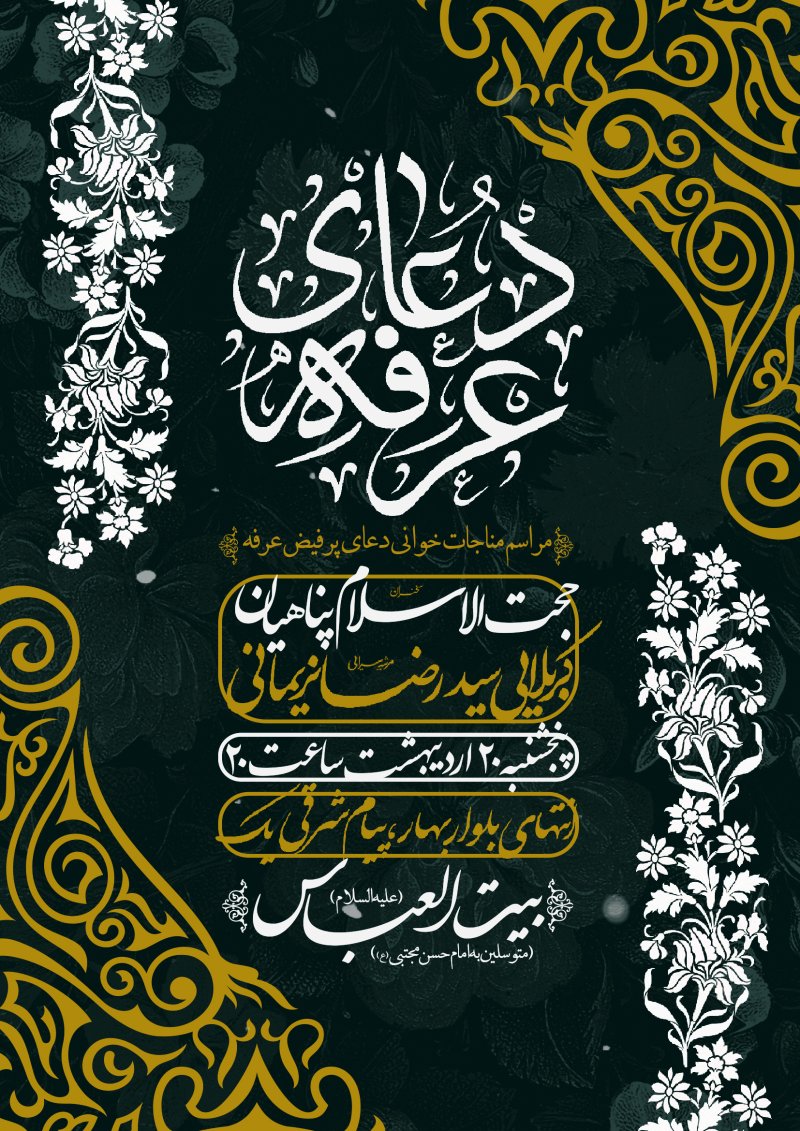 دُعای
عرفه
مراسم مناجات خوانی دعای پرفیض عرفه
سخنران
حجت الاسلام پناهیان
مرثیه سرایی
کربلایی سید رضا نریمانی
پنجشنبه ۲۰ اردیبهشت ساعت ۲۰
انتهای بلوار بهار، پیام شرقی یک
بیت العباس (علیه السلام)
(متوسلین به امام حسن مجتبی (ع))